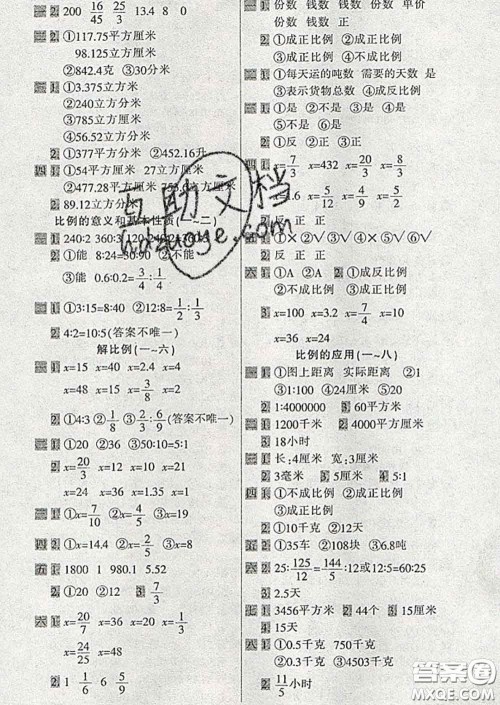 二 2. 200 16/45 25/3 13.4 8 0
三 1. ①117.75平方厘米
98.125立方厘米
②842.4克 ③30分米
1. ①3.375立方米
②240立方分米
③785立方厘米
④56.52立方厘米
2. ①377平方分米 ②452.16升
四 1. ①54平方厘米 27立方厘米
②477.28平方厘米 立方厘米
2. 89.12立方分米
比例的意义和基本性质(一~二)
1. 240:2 360:3
2. ①能 8:24=30:90 ②不能
③能 0.6:0.2=3/4:1/4
二 1. ①3:15=8:40 ②12:8=1/2:1/3
2. 4:2=10:5(答案不唯一)
解比例(一~六)
1. x=15 x=40 x=2.4 x=4
x=48 x=15 x=3/8 x=2
2. ①4:3 ②1/8 ③2/3:6/9(答案不唯一)
1. ①20 ②36 ③50:5=5:1
2. x=20/3 x=12 x=10 x=21
x=24 x=16 x=1.35 x=1
三 1. ①x=7/10 ②x=1/2 ③x=19
四 2. ①x=14.4 ②x=2/5
五 1. 1800 1 980.1 5.52
2. ①20 ②12 3. 7/3
六 1. x=20/7 x=36 x=20 x=1/3
x=24/25 x=48
2. 1 1/6 6 5/9
1. 份数 钱数 钱数 份数 单价
份数 钱数 正
2. ①成正比例 ②成正比例
二 1. ①每天运的吨数 需要的天数 是
③表示货物总数 ④成反比例
三 1. ①是 ②不是 ③不是 ④是
⑤不是 ⑥是
2. ①反 ②正 ③正
四 1. x=7/3 x=432 x=20/3 x=8/3
x=1.6 x=5/2 x=4/5 x=5/9
2. 反 正 正
五 1. ①× ②√ ③√ ④× ⑤√ ⑥√
2. 反 正 正
六 1. ①A ②A 2. ①成反比例
②不成比例 ③成正比例
3. x=36 x=2 x=7/4 x=10
x=36 x=24
比例的应用(一~八)
一 1. ①图上距离 实际距离 ②36
③1:100 ④24厘米 ⑤20
2. 1:4000000 3. 60平方米
二 1. 1200千米 2. 4000平方厘米
3. 18小时
三 1. 长:4厘米 宽:3厘米
2. 3毫米 3. 5厘米 4. 5:1
四 1. ①不成比例 ②成正比例
③成正比例
2. ①10千克 ②12天
五 2. ①35车 ②108块 ③6.8吨
六 2. 25:125/12=144/5:12或12:5=60:25
3. 2.5天
七 1. 3456平方米 2. 44个 3. 15厘米
4. 15天
八 1. ①0.5千克 750千克
②0.3千克 ③4503千克
2. 11/5小时
互助文档
hdzuoye.com
答案圈
MXQE.COM